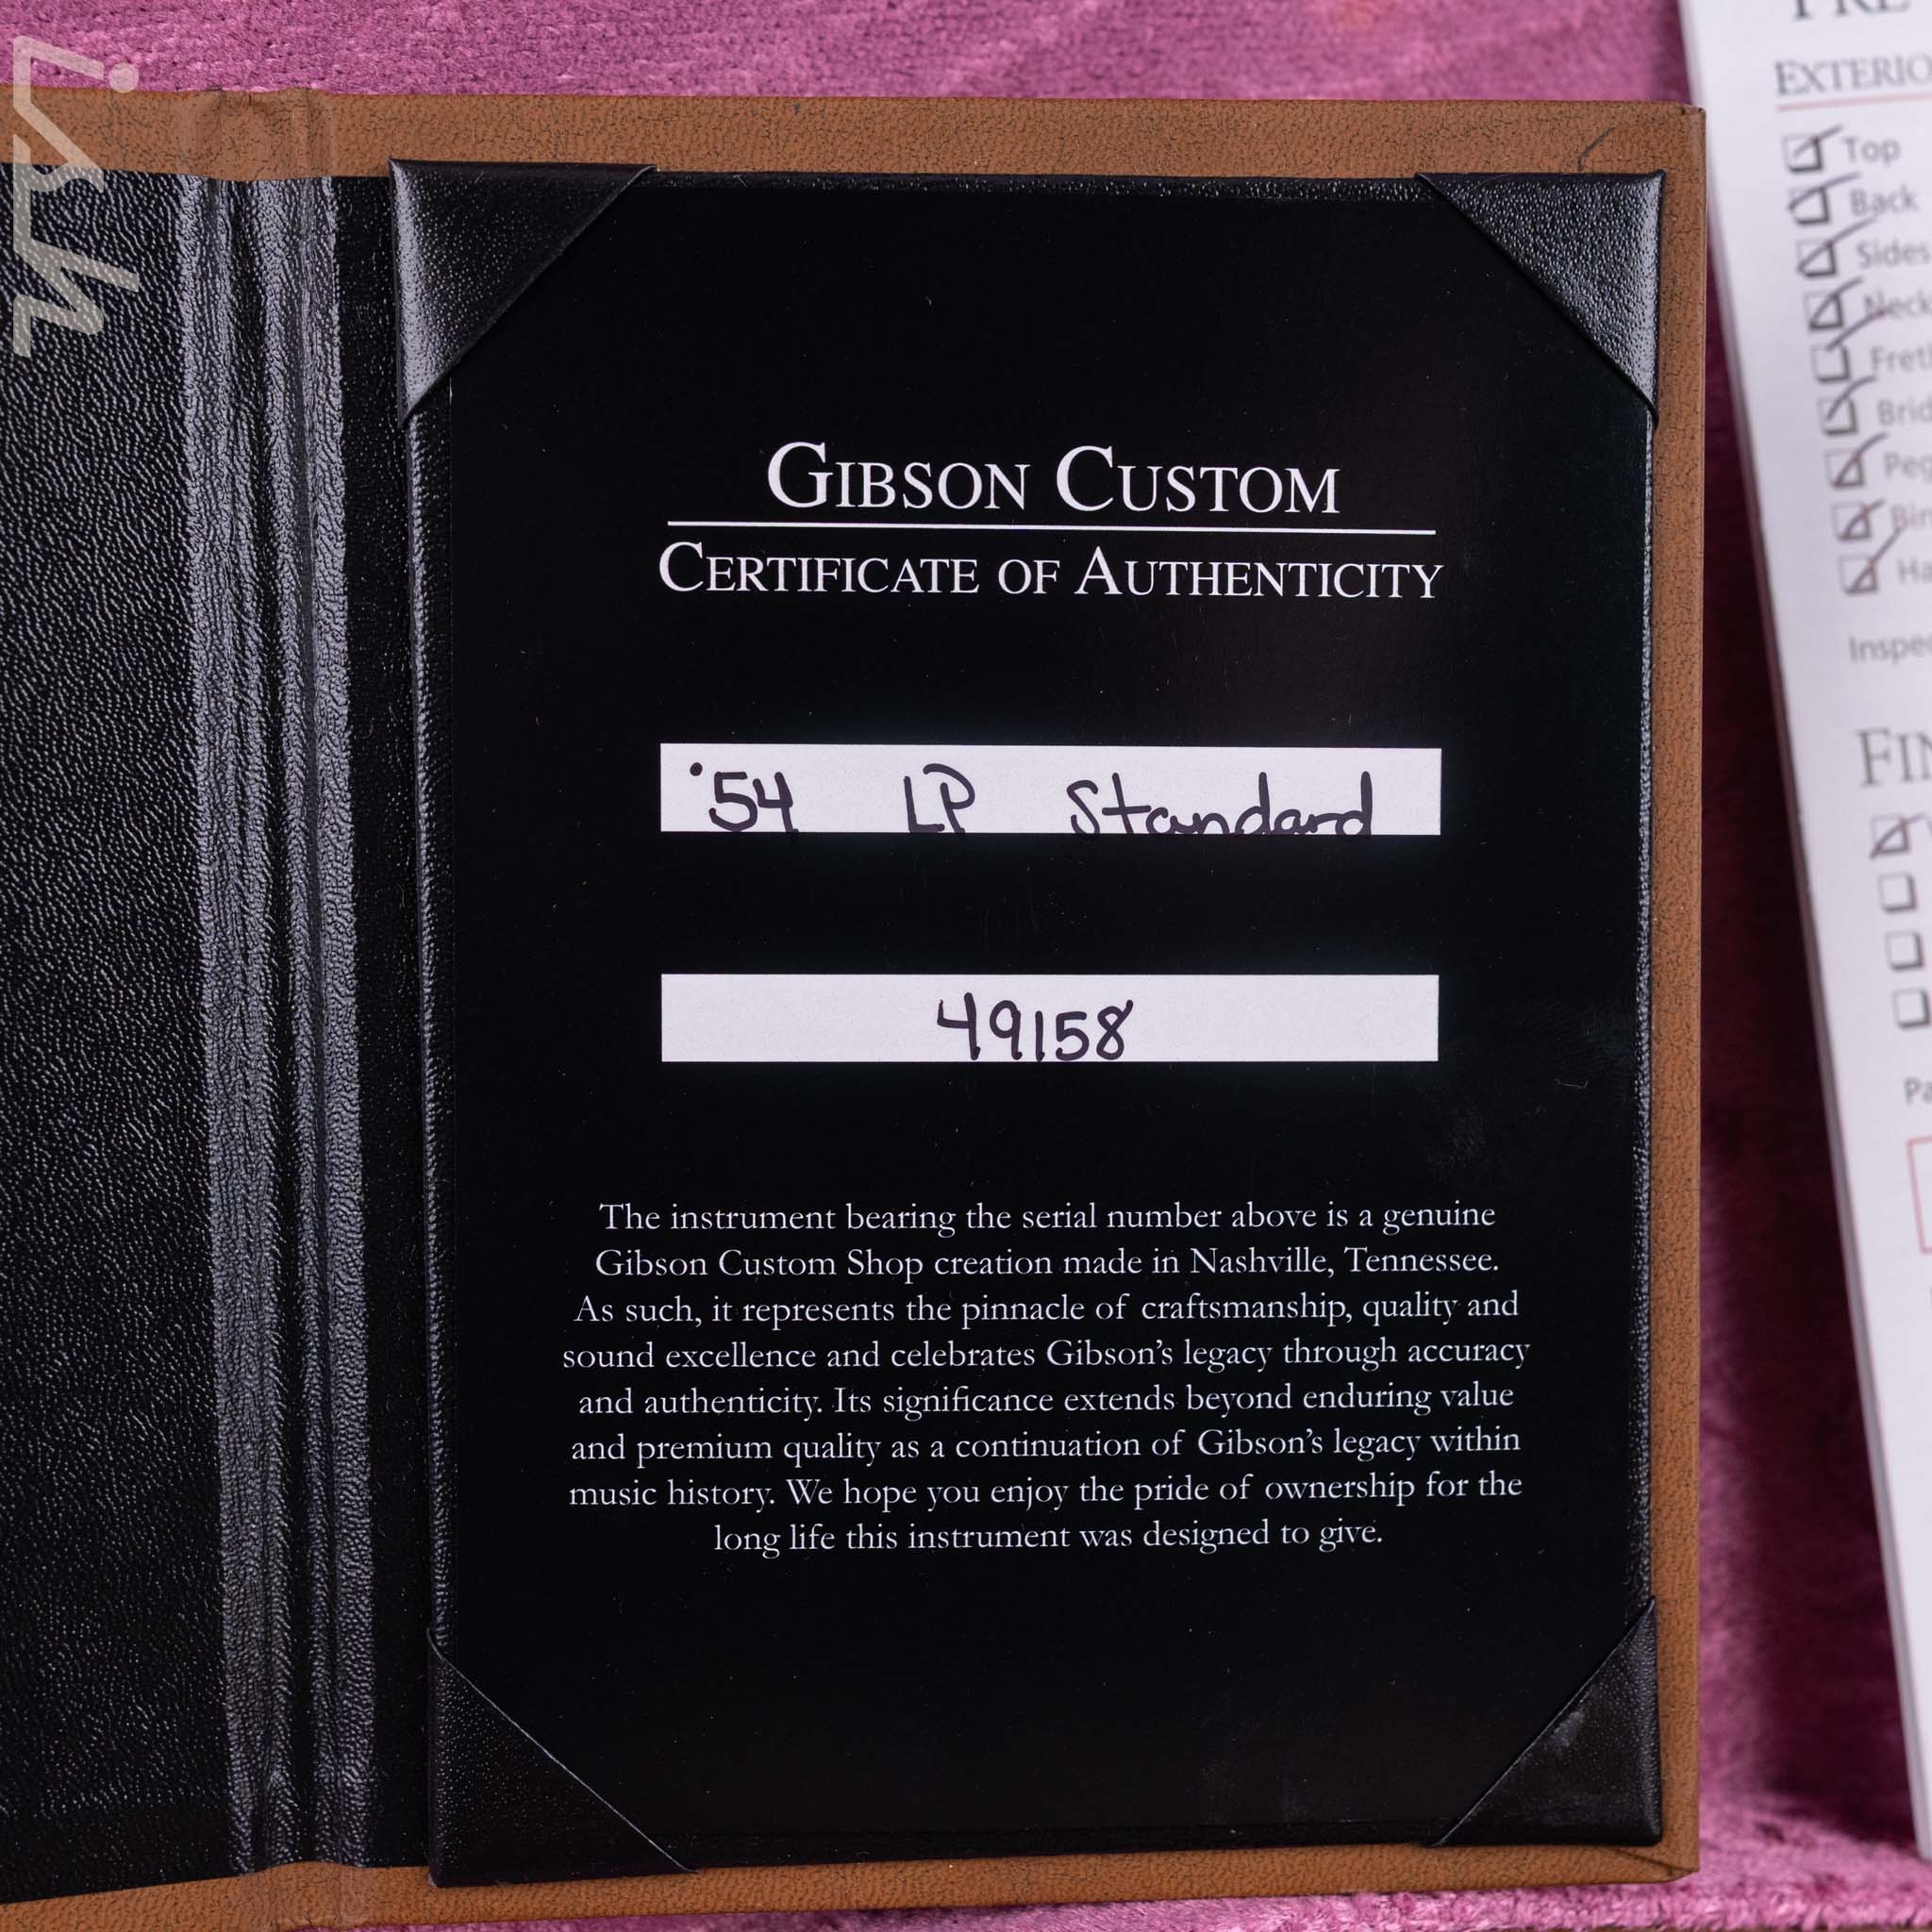 GIBSON CUSTOM
CERTIFICATE OF AUTHENTICITY
'54 LP Standard
49158
The instrument bearing the serial number above is a genuine
Gibson Custom Shop creation made in Nashville, Tennessee.
As such, it represents the pinnacle of craftsmanship, quality and
sound excellence and celebrates Gibson's legacy through accuracy
and authenticity. Its significance extends beyond enduring value
and premium quality as a continuation of Gibson's legacy within
music history. We hope you enjoy the pride of ownership for the
long life this instrument was designed to give.
Top
Back
Sides